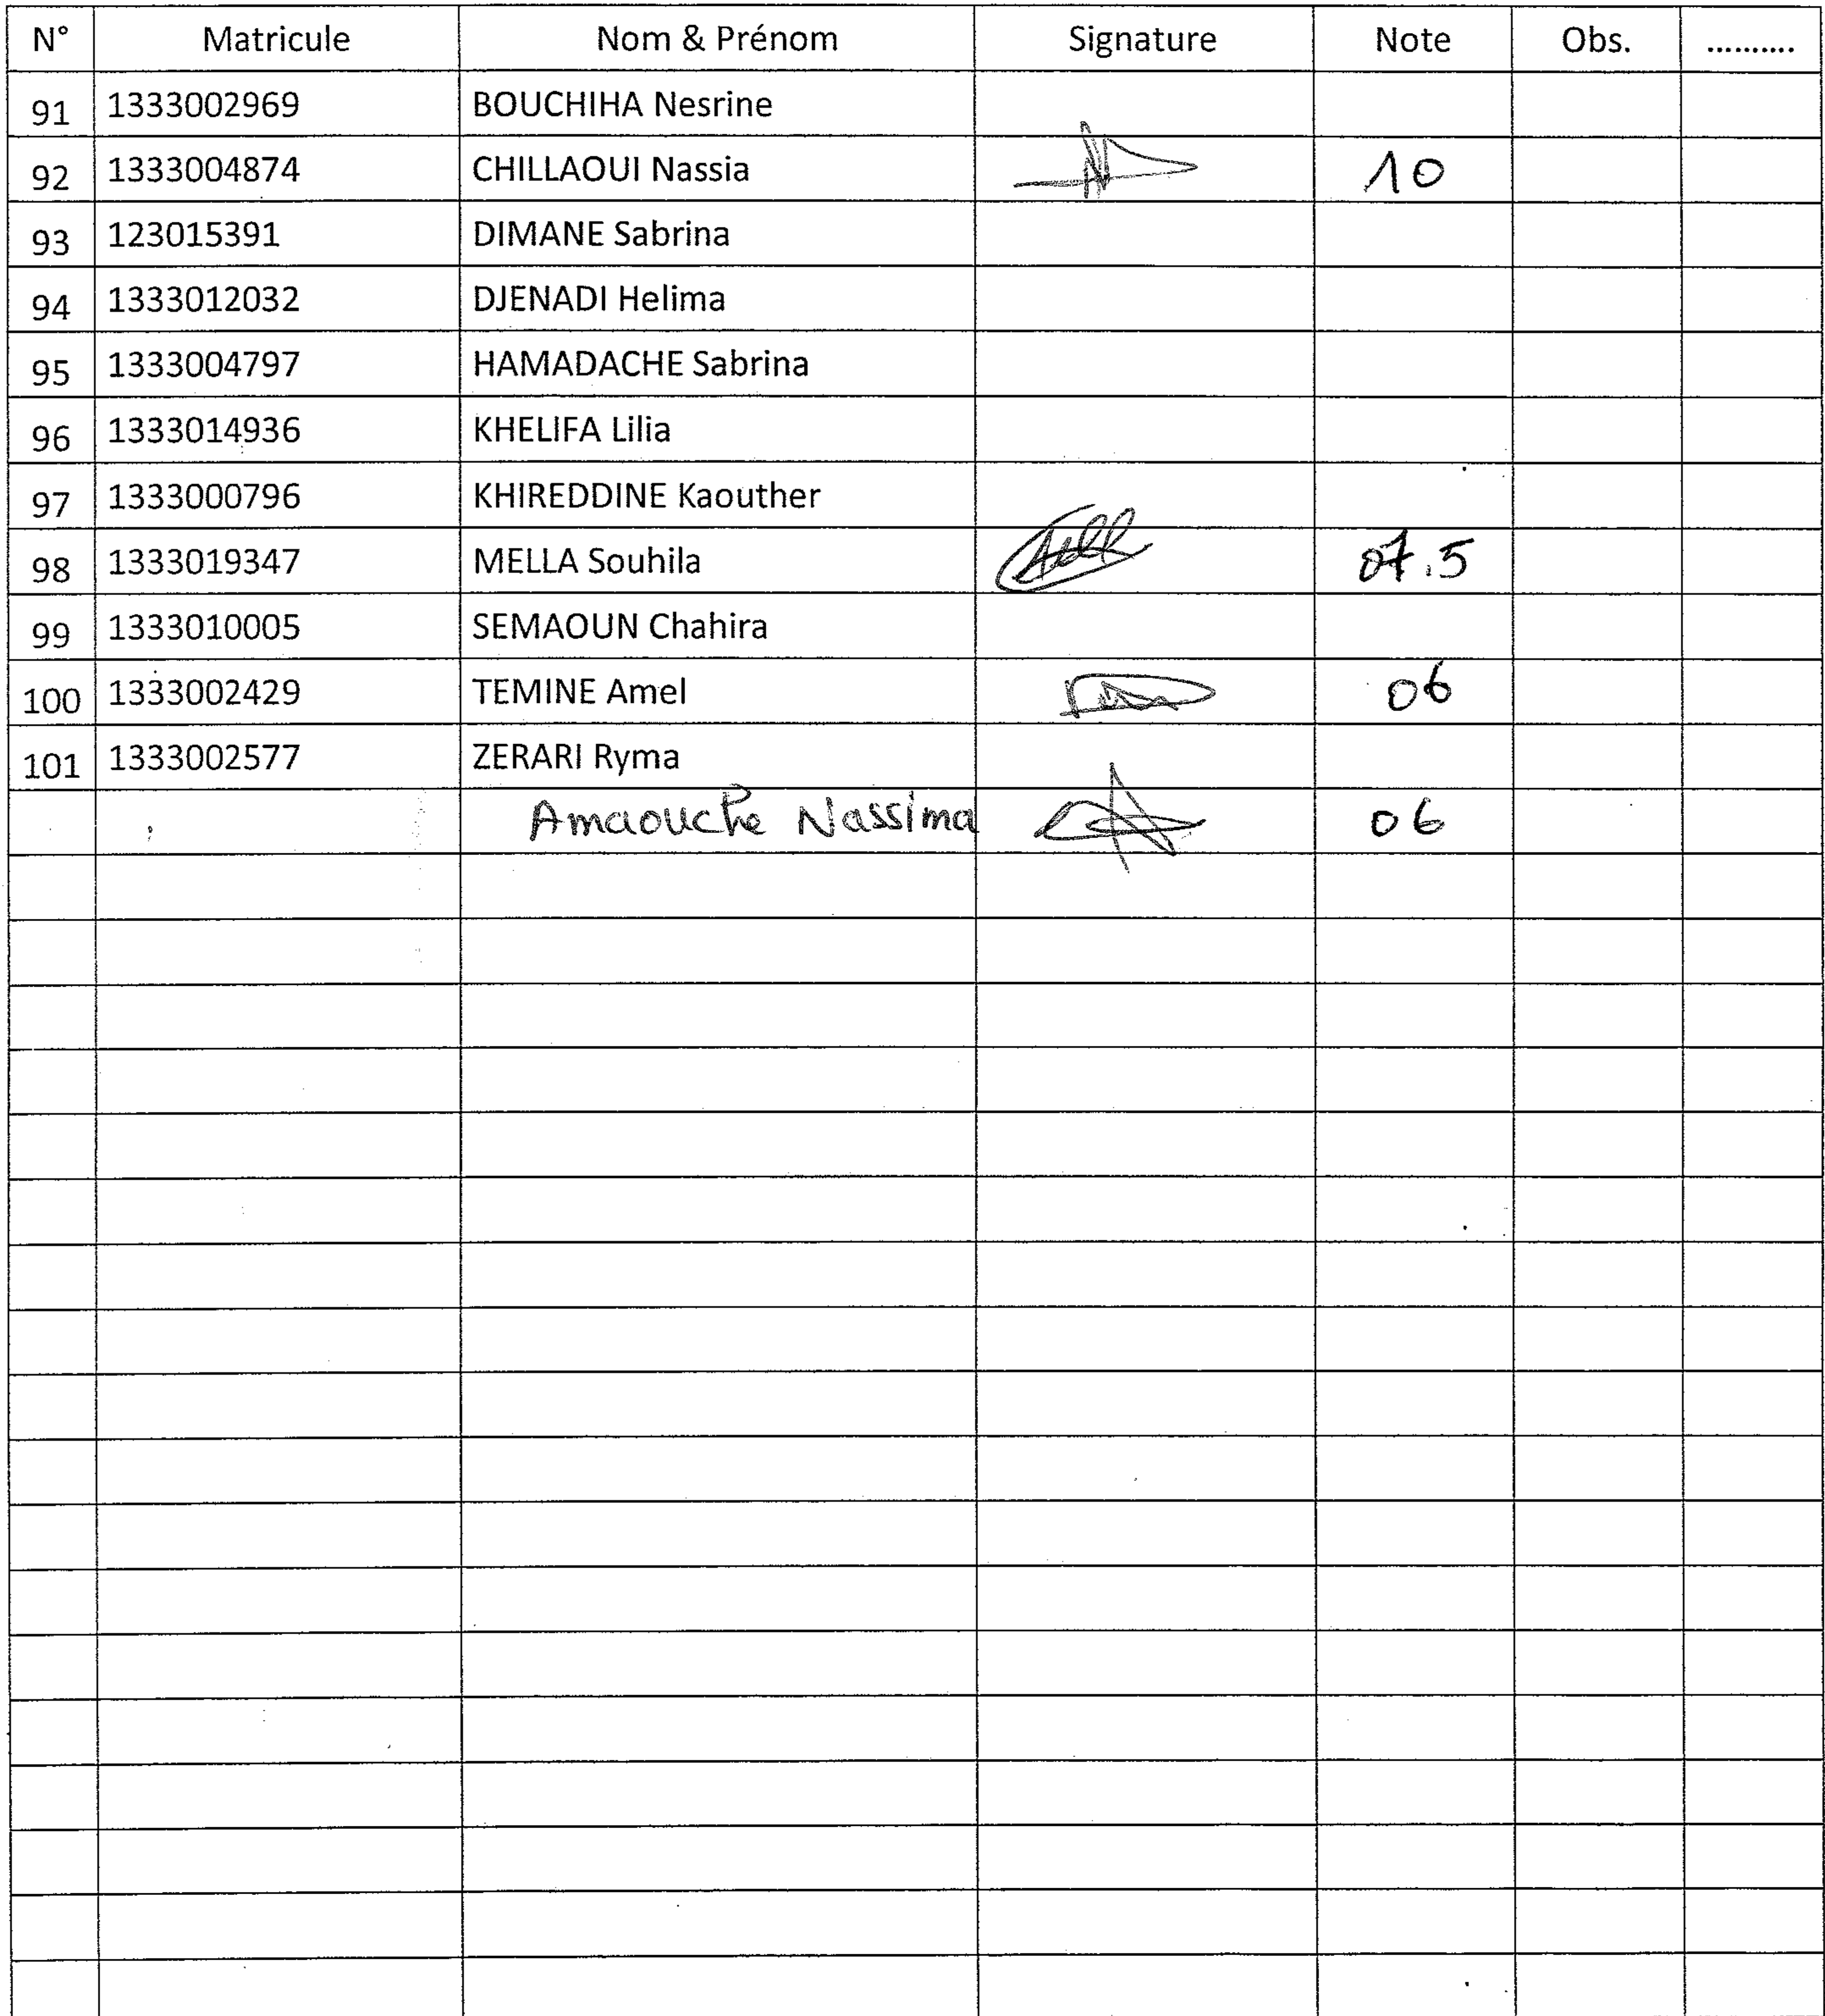 N° Matricule Nom & Prénom Signature Note Obs. ..........
91 1333002969 BOUCHIHA Nesrine
92 1333004874 CHILLAOUI Nassia 10
93 123015391 DIMANE Sabrina
94 1333012032 DJENADI Helima
95 1333004797 HAMADACHE Sabrina
96 1333014936 KHELIFA Lilia
97 1333000796 KHIREDDINE Kaouther
98 1333019347 MELLA Souhila 07.5
99 1333010005 SEMAOUN Chahira
100 1333002429 TEMINE Amel 06
101 1333002577 ZERARI Ryma
Amaouche Nassima 06